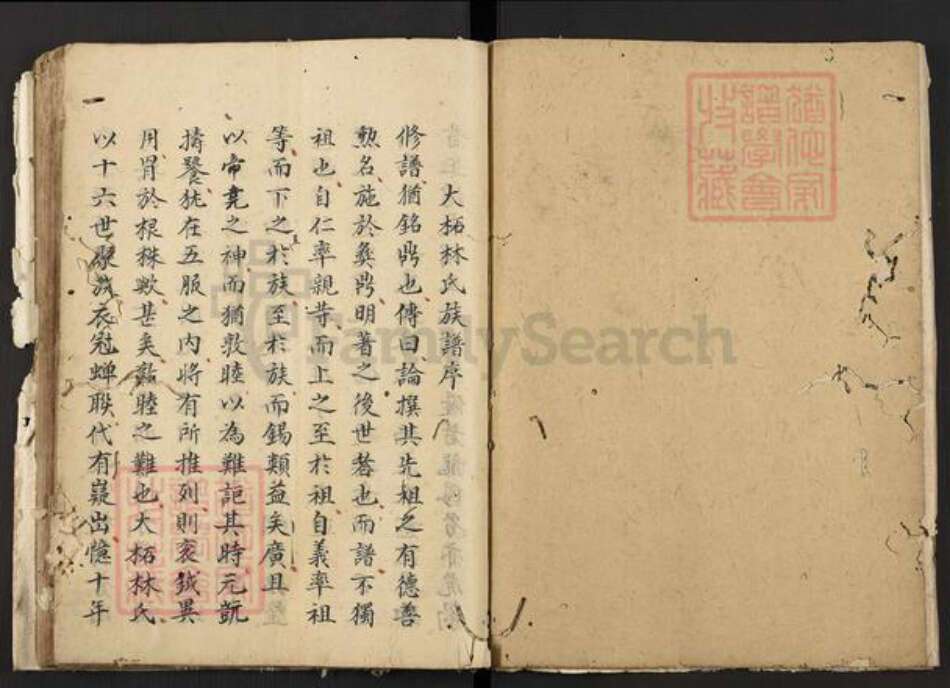 猶佗家
譜學會
特藏
大柘林氏族譜序
修譜猶銘鼎也傳曰論撰其先祖之有德善
勲名施於彝鼎明著之後世者也而譜不獨
祖也自仁率親等而上之至於祖自義率祖
等而下之於族至於族而錫類益矣廣且
以帝堯之神而猶敦睦以為難詎其時元凱
擣饕犹在五服之内將有所推列則袞鉞異
用胥於根株歟甚矣敦睦之難也大柘林氏
以十六世聚族衣冠蟬聯代有嶷出憶十年
FamilySearch